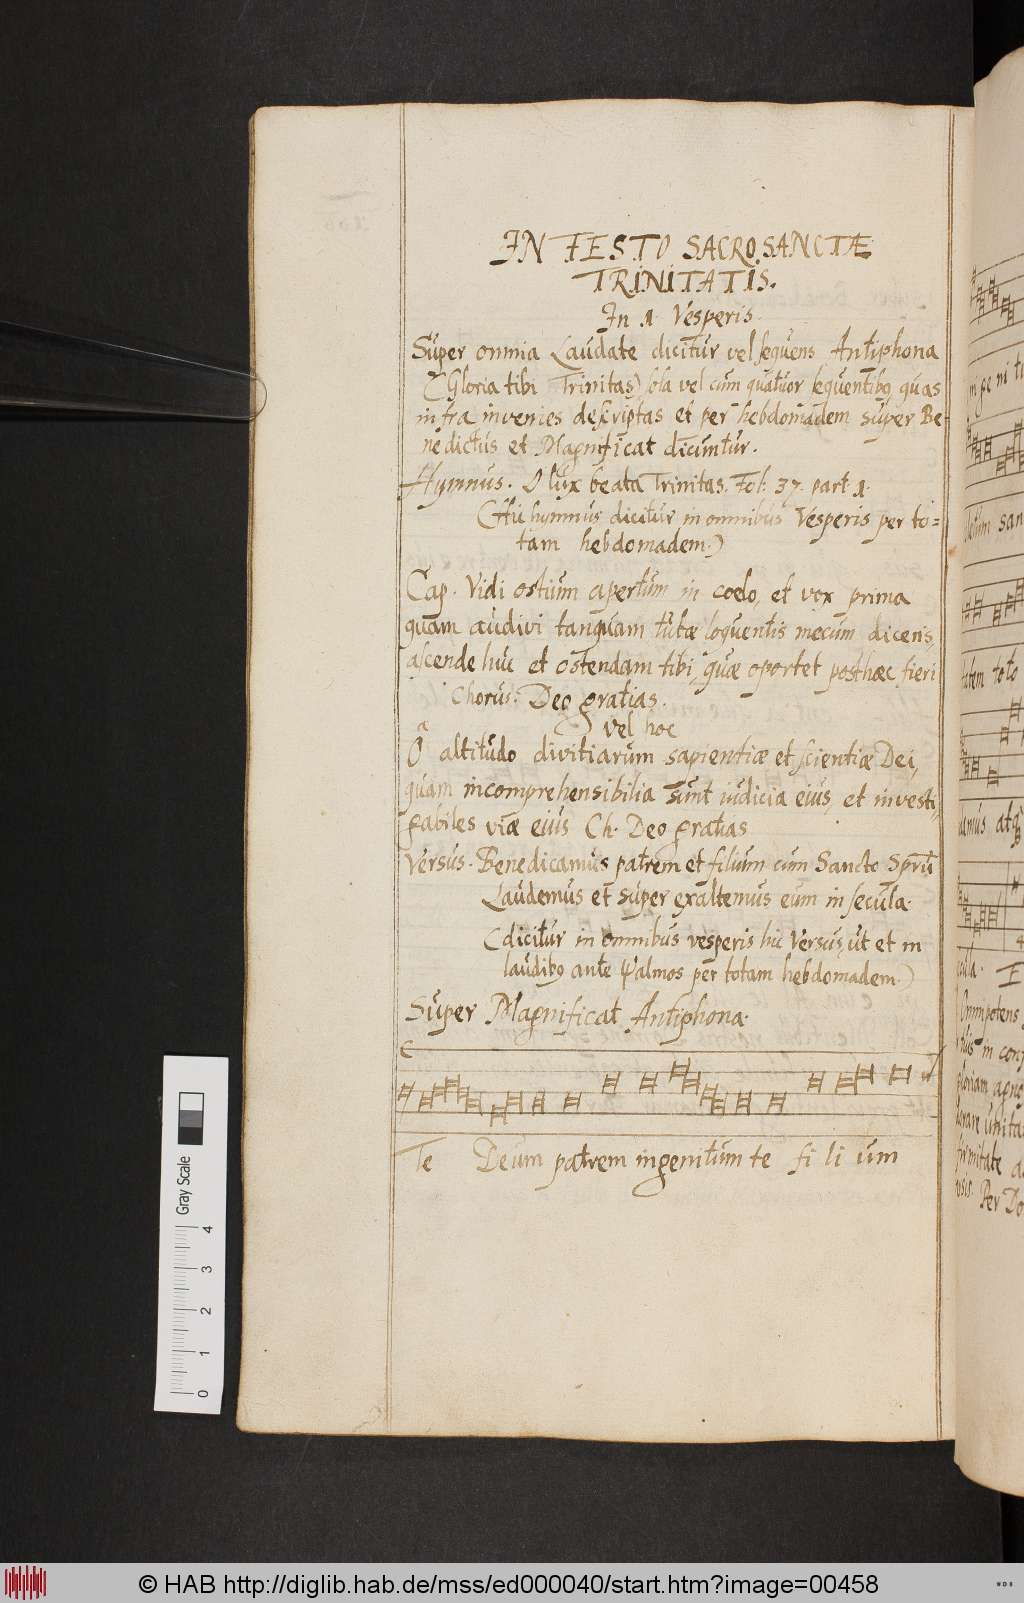 IN FESTO SACROSANCTÆ
TRINITATIS.
In 1 Vesperis.
Super omnia Laudate dicitur vel sequens Antiphona
(Gloria tibi Trinitas) sola vel cum quatuor sequentibq quas
infra invenies descriptas et per hebdomadem super Be-
nedictus et Magnificat dicuntur.
Hymnus. O lux beata Trinitas. Fol. 37. part. 1.
(Hic hymnus dicitur in omnibus Vesperis per to=
tam hebdomadem.)
Cap. Vidi ostium apertum in coelo, et vox prima
quam audivi tanquam tubæ loquentis mecum dicens,
ascende huc et ostendam tibi, quæ oportet posthæc fieri
Chorus: Deo gratias.
vel hoc
O altitudo divitiarum sapientiæ et scientiæ Dei,
quam incomprehensibilia sunt iudicia eius, et investi,,
gabiles viæ eius Ch. Deo gratias
Versus. Benedicamus patrem et filium cum Sancto Sprũ
Laudemus et super exaltemus eum in secula.
(dicitur in omnibus vesperis hic Versus, ut et in
laudibq ante Psalmos per totam hebdomadem.)
Super Magnificat Antiphona.
Te Deum patrem ingenitum te fi li um
ni pe ni ti
tatem toto
amus atq
cula.
Omnipotens
tuis in conf
gloriam agnos
Per Do
Gray Scale
4
3
2
1
0
© HAB http://diglib.hab.de/mss/ed000040/start.htm?image=00458